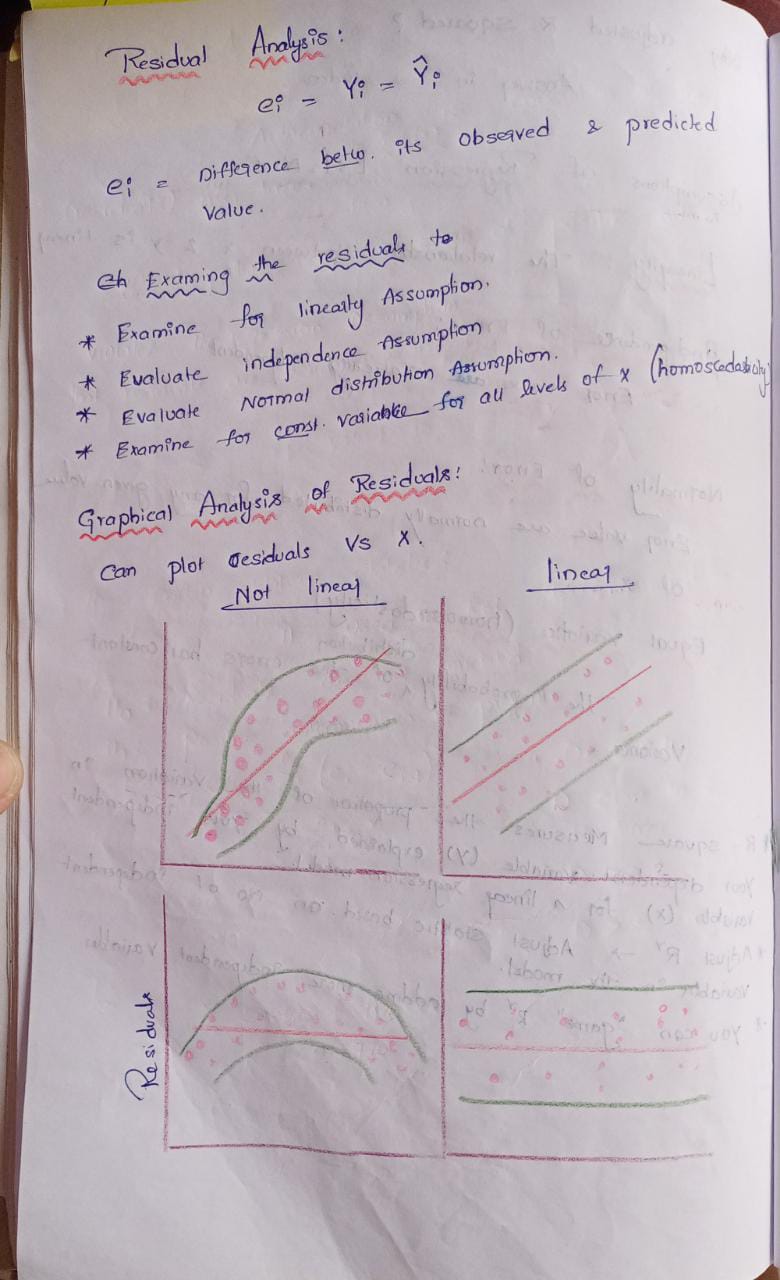 Residual Analysis :
ei = Yi = Ŷi
ei = Difference betw. its observed & predicted
value.
Eh Examing the residuals to
* Examine for linearly Assumption.
* Evaluate independence Assumption
* Evaluate Normal distribution Assumption.
* Examine for const. variable for all levels of x (homoscedasticity)
Graphical Analysis of Residuals:
Can plot residuals Vs X.
Not linear
linear
Residuals